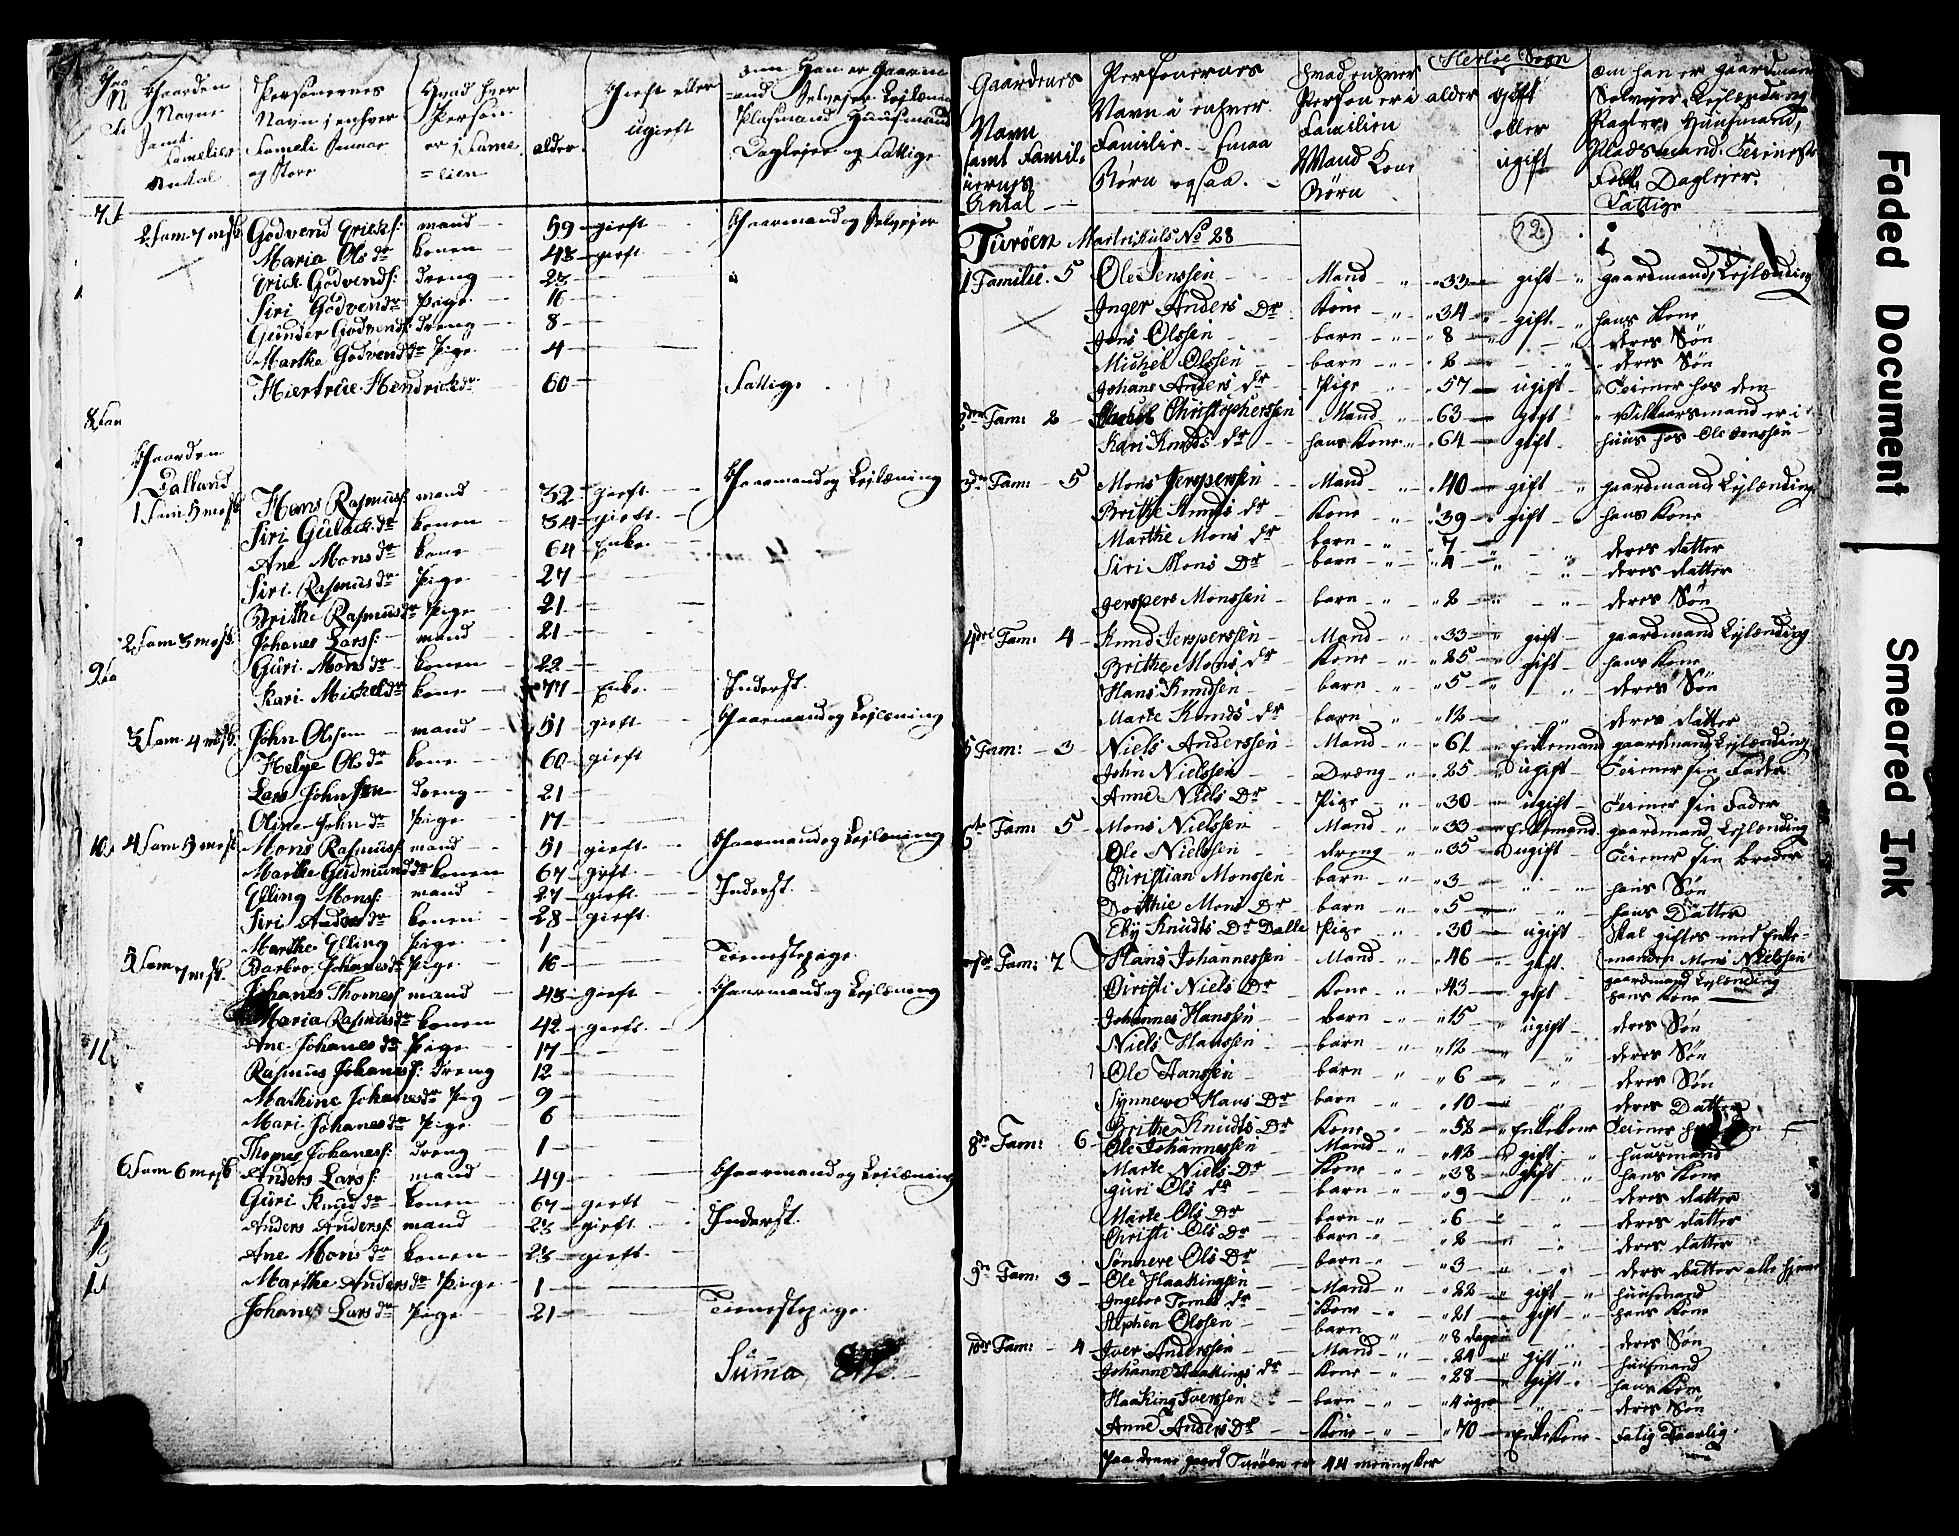 Gaarden
Navne
Samt
Familier
Antal
Personernes
Navn i enhver
Fameli Smaae
og Store
Hvad hver
Person
er i Fame
=lien
alder
Gieft eller
ugieft
om Han er Gaarm
=and Selvejer Lejlænin
Plasmand Huusmand
Daglejer og Fattige
2 Fam 7 mesk Godvend Ericks: mand 59 gieft Gaarmand og Selvejer
Maria Ols dr konen 43 gieft
Erick Godvends: dreng 23
Siri Godvends dr Pige 16
Gunder Godvends: dreng 8
Marthe Godvends dr Pige 4
Hiertrüe Hendrick dr 60 Fattige
8 Fam
Gaarden
Dalland
1 Fam 5 mesk Hans Rasmuss: mand 32 gieft Gaarmand og Lejlæning
Siri Gulack dr konen 34 gieft
Ane Mons dr kone 64 Enke
Siri Rasmus dr Pige 27
Brithe Rasmus dr Pige 21
2 Fam 3 mesk Johanes Larss: mand 21
Guri Mons dr konen 22
Kari Mickel dr kone 77 Enke Inderst.
3 Fam 4 mesk John Olssen mand 51 gieft Gaarmand og Lejlæning
Helge Ols dr kone 60 gieft
Lars Johnssen dreng 21
Oline John dr Pige 17
10 4 Fam 5 mesk Mons Rasmuss: mand 51 gieft Gaarmand og Lejlæning
Marthe Gudmund dr konen 67 gieft
Elling Monss: mand 27 gieft Inderst.
Siri Anders dr konen 28 gieft
Marthe Elling Pige 1
Barbro Johanes dr Pige 16 Tienestepige
5 Fam 7 mesk Johanes Thomess: mand 43 gieft Gaarmand og Lejlæning
Maria Rasmus dr konen 42 gieft
Ane Johanes dr Pige 17
Rasmus Johaness: dreng 12
Mathine Johanes dr Pig 9
Mari Johanes dr Pige 6
Thomes Johaness: dreng 1
6 Fam 6 mesk Anders Larss: mand 49 Gaarmand og Lejlæning
Guri Knud dr konen 67 gieft
Anders Anderss: mand 23 gieft Inderst.
Ane Mons dr konen 23 gieft
Marthe Anders dr Pige 1
Johanes Lars dr Pige 21 Tienestepige
Suma
Herløe Sogn
Gaardenes
Navn
samt Famili-
iernes
Antal
Personernes
Navn i enhver
Familie - smaa
Børn ogsaa.
hvad enhver
Person er i
Familien
Mand Kone
Børn
alder
gift
eller
ugift
om han er gaardmand
Selvejer, Lejlænding
Pagter, Huusmand,
Pladsmand. Tieneste
Folk, Daglejer.
Fattige
Turøen Martrikuls No 28
12
1 Familie. 5 Ole Jenssen Mand 33 gift gaardmand, Lejlænding
Inger Anders Dr Kone 34 gift hans Kone
Jens Olssen barn 8 deres Søn
Michel Olssen barn 2 deres Søn
Johans Anders dr Pige 57 ugift Tiener hos dem
2den Fam: 2 Christophersen Mand 63 gift Vilkaarsmand er i
Kari Knuds dr hans Kone 64 gift huus hos Ole Jenssen
3die Fam: 5 Mons Jerspersen Mand 40 gift gaardmand Lejlænding
Brithe Knuds dr Kone 39 gift hans Kone
Marthe Mons dr barn 7 deres datter
Siri Mons Dr barn 4 deres datter
Jerspers Monssen barn 2 deres Søn
4de Fam: 4 Knud Jerspersen Mand 33 gift gaardmand Lejlænding
Brithe Mons dr Kone 25 gift hans Kone
Hans Knudsen barn 5 deres Søn
Marte Knuds dr barn 12 deres datter
5 Fam: 3 Niels Anderssen Mand 61 Enkemand gaardmand, Lejlænding
John Nielssen Dræng 25 ugift Tiener sin Fader
Anne Niels Dr Pige 30 ugift Tiener sin Fader
6te Fam: 5 Mons Nielssen Mand 33 Enkemand gaardmand Lejlænding
Ole Nielssen dreng 35 ugift Tiener sin broder
Christian Monssen barn 3 hans Søn
Dorthie Mons Dr barn 5 hans Datter
Eby Knudts Dr Dalle Pige 30 ugift skal giftes med Enke-
manden Mons Nielssen
7de Fam: 7 Hans Johannessen Mand 46 gift gaardmand Lejlænding
Ciristi Niels Dr Kone 43 gift hans Kone
Johannes Hanssen barn 15 ugift deres Søn
Niels Hanssen barn 12 deres Søn
Ole Hanssen barn 6 deres Søn
Synneve Hans Dr barn 10 deres Datter
Brithe Knudts Dr Kone 58 Enkekone Tiener
8de Fam: 6 Ole Johannessen Mand 42 gift huusmand
Marte Niels Dr Kone 38 gift hans Kone
guri Ols dr barn 9 deres datter
Marte Ols Dr barn 6 deres datter
Christi Ols Dr barn 2 deres datter
Sønneve Ols Dr barn 3 ders datter alle hjeme
9de Fam: 3 Ole Haakingsen Mand 22 gift huusmand
Ingebor Tomes dr Kone 21 gift hans Kone
Stephen Olssen barn 8 dage deres Søn
10de Fam: 4 Iver Anderssen Mand 24 gift huusmand
Johanne Haakings dr Kone 28 gift hans Kone
Haaking Iverssen barn 4 uger deres Søn
Anne Anders Dr Kone 70 Enkekone Fatig Daarlig
Paa denne gaard Turøen er 44 mennesker
Faded Document
Smeared Ink